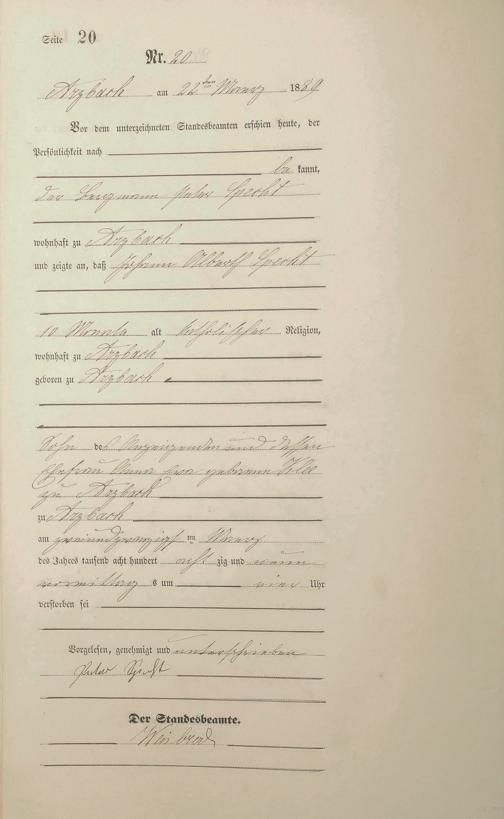 Seite 20
Nr. 20
Arzbach am 22ten Maerz 1889
Vor dem unterzeichneten Standesbeamten erschien heute, der
Persönlichkeit nach
bekannt,
der Bergmann Peter Specht
wohnhaft zu Arzbach
und zeigte an, daß Johann Albert Specht
10 Monate alt katholischer Religion,
wohnhaft zu Arzbach
geboren zu Arzbach
Sohn des Anzeigenden und dessen
Ehefrau Anna geborene Klee
zu Arzbach
zu Arzbach
am zweiundzwanzigsten Maerz
des Jahres tausend acht hundert achtzig und neun
vormittags um vier Uhr
verstorben sei
Vorgelesen, genehmigt und unterschrieben
Peter Specht
Der Standesbeamte.